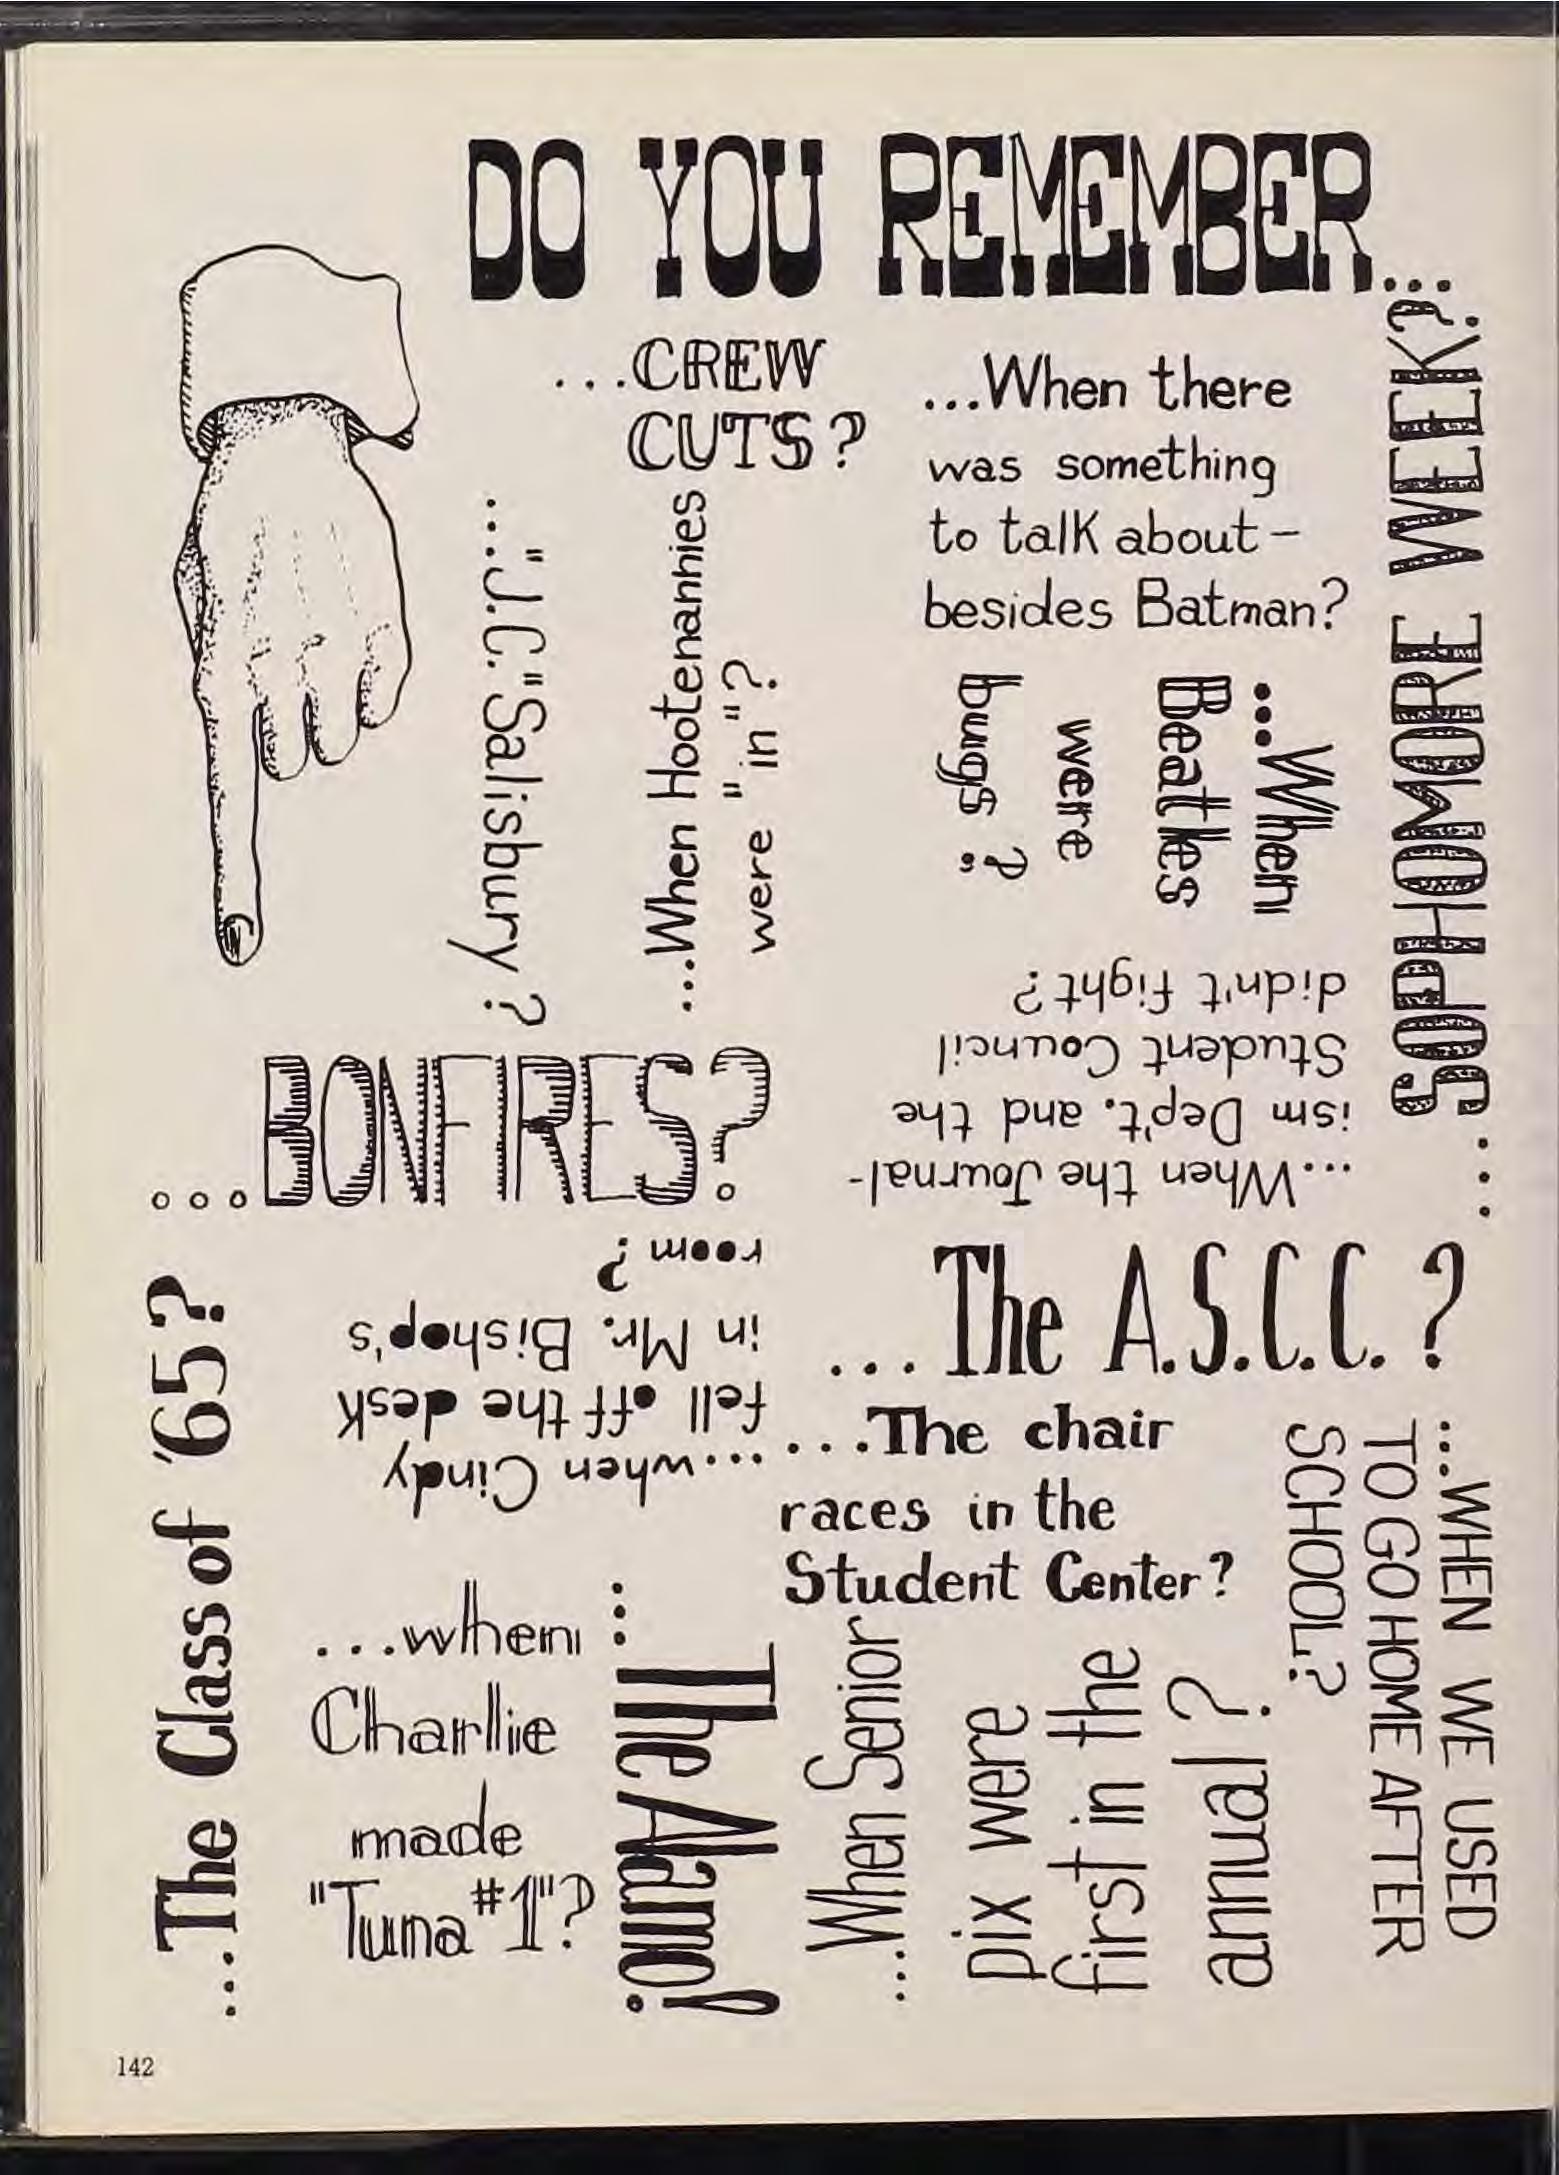 DO YOU REMEMBER...
...CREW
CUTS?
...When there
was something
to talk about–
besides Batman?
...SOPHOMORE WEEK?
..."J.C." Salisbury?
...When Hootenannies
were "in"?
...When
Beatles
were
bugs?
...When the Journal-
ism Dep't. and the
Student Council
didn't fight?
...BONFIRES?
...The A.S.C.C.?
...The Class of '65?
...when Cindy
fell off the desk
in Mr. Bishop's
room?
...The chair
races in the
Student Center?
...WHEN WE USED
TO GO HOME AFTER
SCHOOL?
...when
Charlie
made
"Tuna #1"?
...The Alamo!
...When Senior
pix were
first in the
annual?
142